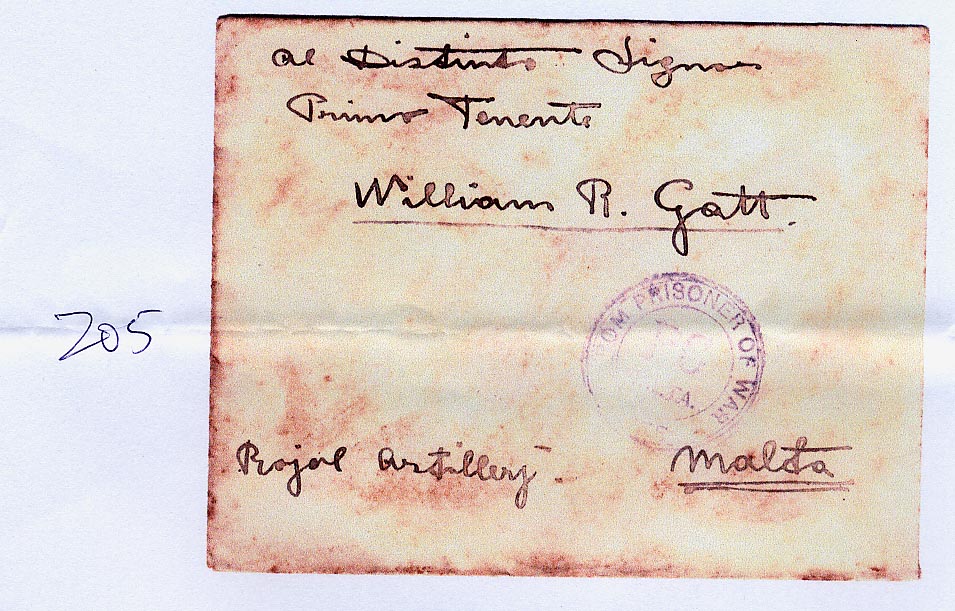 al Distinto Signor
Primo Tenente
William R. Gatt.
OM PRISONER OF WAR
TA.
205
Royal Artillery.
Malta